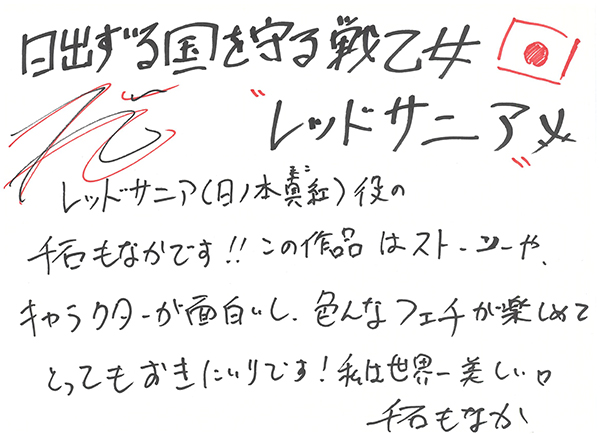 日出ずる国を守る戦乙女
"レッドサニア"
レッドサニア(日ノ本真紅)役の
千石もなかです!!この作品はストーリーや、
キャラクターが面白いし、色んなフェチが楽しめて
とってもおきにいりです!私は世界一美しい。
千石もなか